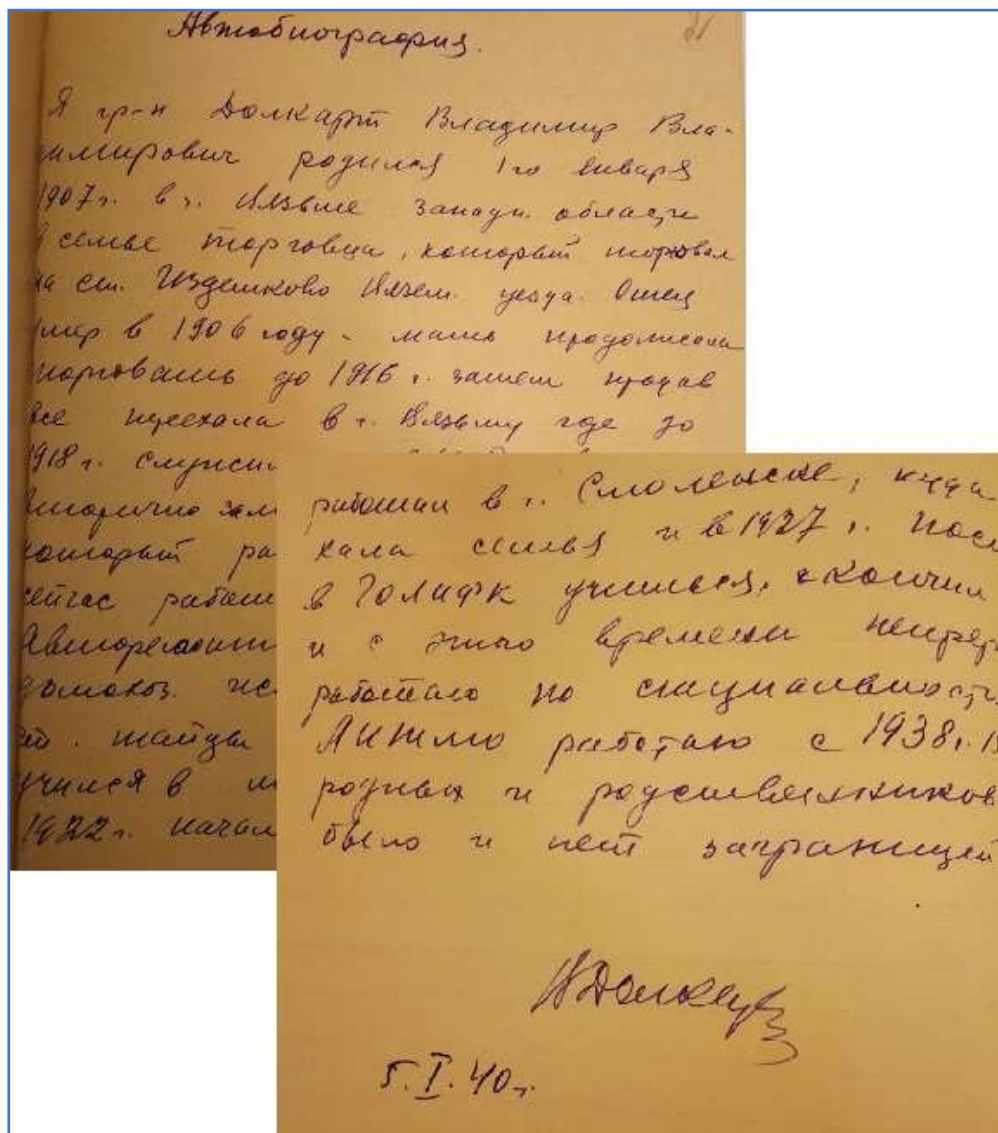 Автобиография.
31
Я гр-н Долкарт Владимир Вла-
димирович родился 1го января
1907г. в г. Вязьме Западн. области
в семье торговца, который торговал
на ст. Издешково Вязем. уезда. Отец
умер в 1906 году - мать продолжала
торговать до 1916 г. затем продав
все переехала в г. Вязьму где до
1918 г. служи
вторично зам
который ра
сейчас работ
Авторемонт
домохоз.
учился в
1922г. начал
работал в г. Смоленске, куда
хала семья и в 1927 г. пос
в ГОЛИФК учиться, окончил
и с этого времени непрер
работаю по специальности
ЛИТМО работаю с 1938г.
родных и родственников
было и нет заграницей
ВДолкарт
5.I.40г.